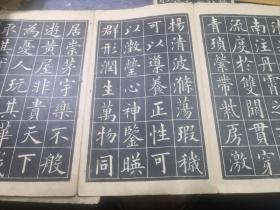 南注丹霄之右
流度於雙闕貫穿
青瑣縈帶紫房激
揚清波滌蕩瑕穢
可以導養正性可
以澂瑩心神鑒暎
群形潤生萬物同
居崇茅宇樂不般
遊黃屋非貴天下
為憂人玩其華我
取其